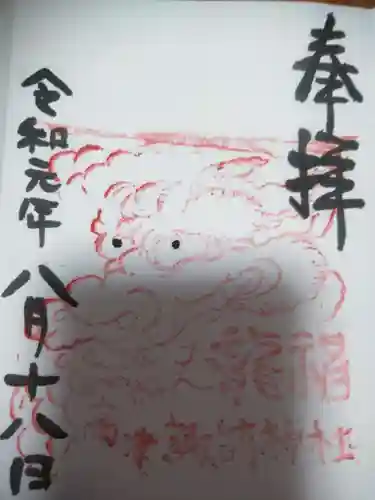 奉拝
令和元年八月十八日
諏訪神社